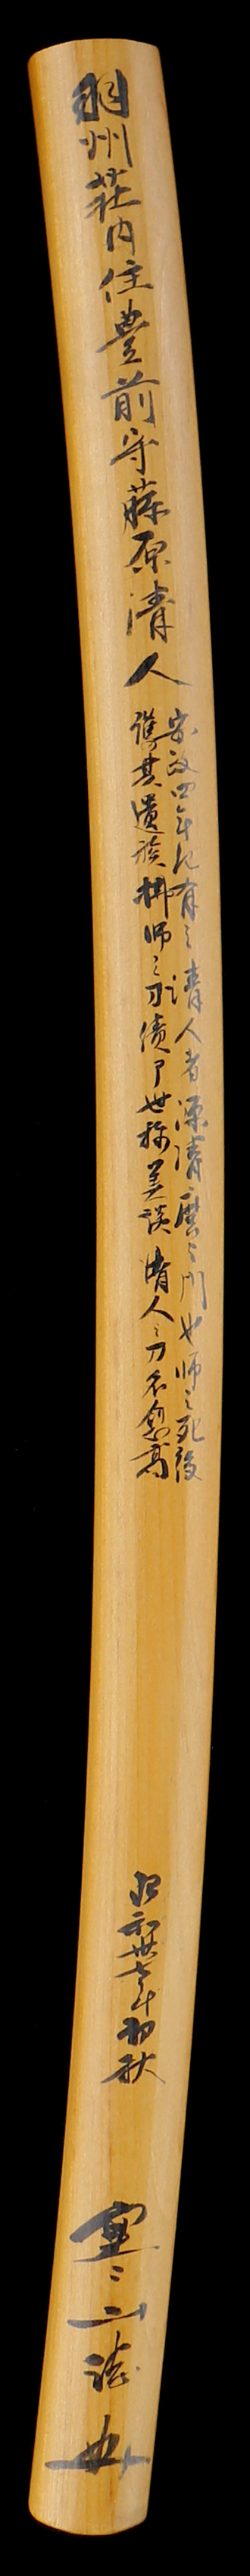 羽州荘内住豊前守藤原清人
安政四年紀有之清人者源清麿之門也師之死後
護其遺族携師之刀債了世称美談清人之刀名愈高
昭和卅七年初秋
寒山誌